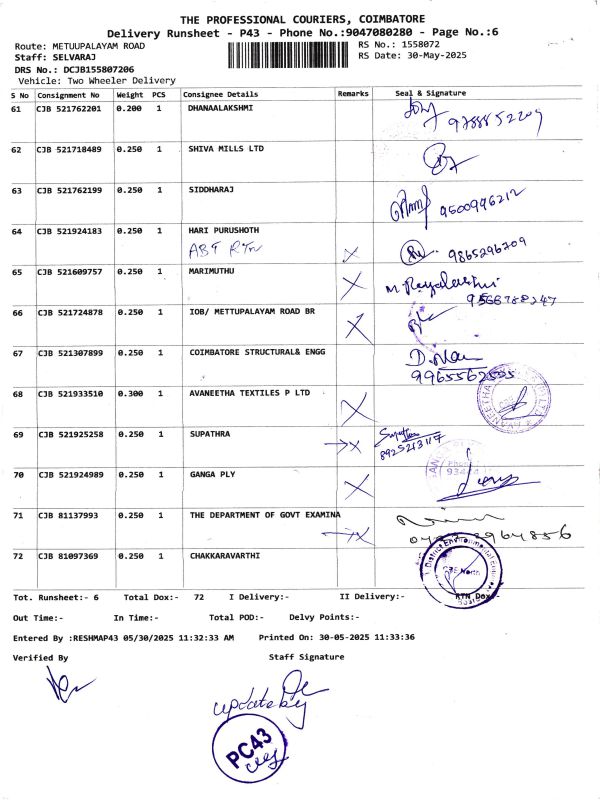 THE PROFESSIONAL COURIERS, COIMBATORE
Delivery Runsheet - P43 - Phone No.:9047080280 - Page No.:6
Route: METUUPALAYAM ROAD RS No.: 1558072
Staff: SELVARAJ RS Date: 30-May-2025
DRS No.: DCJB155807206
Vehicle: Two Wheeler Delivery
S No Consignment No Weight PCS Consignee Details Remarks Seal & Signature
61 CJB 521762201 0.200 1 DHANAALAKSHMI
9788852209
62 CJB 521718489 0.250 1 SHIVA MILLS LTD
63 CJB 521762199 0.250 1 SIDDHARAJ
9500996212
64 CJB 521924183 0.250 1 HARI PURUSHOTH
ABT RTN X 9865296709
65 CJB 521609757 0.250 1 MARIMUTHU X
9566788247
66 CJB 521724878 0.250 1 IOB/ METTUPALAYAM ROAD BR X
67 CJB 521307899 0.250 1 COIMBATORE STRUCTURAL& ENGG
9965562555
68 CJB 521933510 0.300 1 AVANEETHA TEXTILES P LTD X
69 CJB 521925258 0.250 1 SUPATHRA X
8925213117
70 CJB 521924989 0.250 1 GANGA PLY X
71 CJB 81137993 0.250 1 THE DEPARTMENT OF GOVT EXAMINA X
72 CJB 81097369 0.250 1 CHAKKARAVARTHI
Tot. Runsheet:- 6 Total Dox:- 72 I Delivery:- II Delivery:- RTN Dox:-
Out Time:- In Time:- Total POD:- Delvy Points:-
Entered By :RESHMAP43 05/30/2025 11:32:33 AM Printed On: 30-05-2025 11:33:36
Verified By Staff Signature
update by
PC43